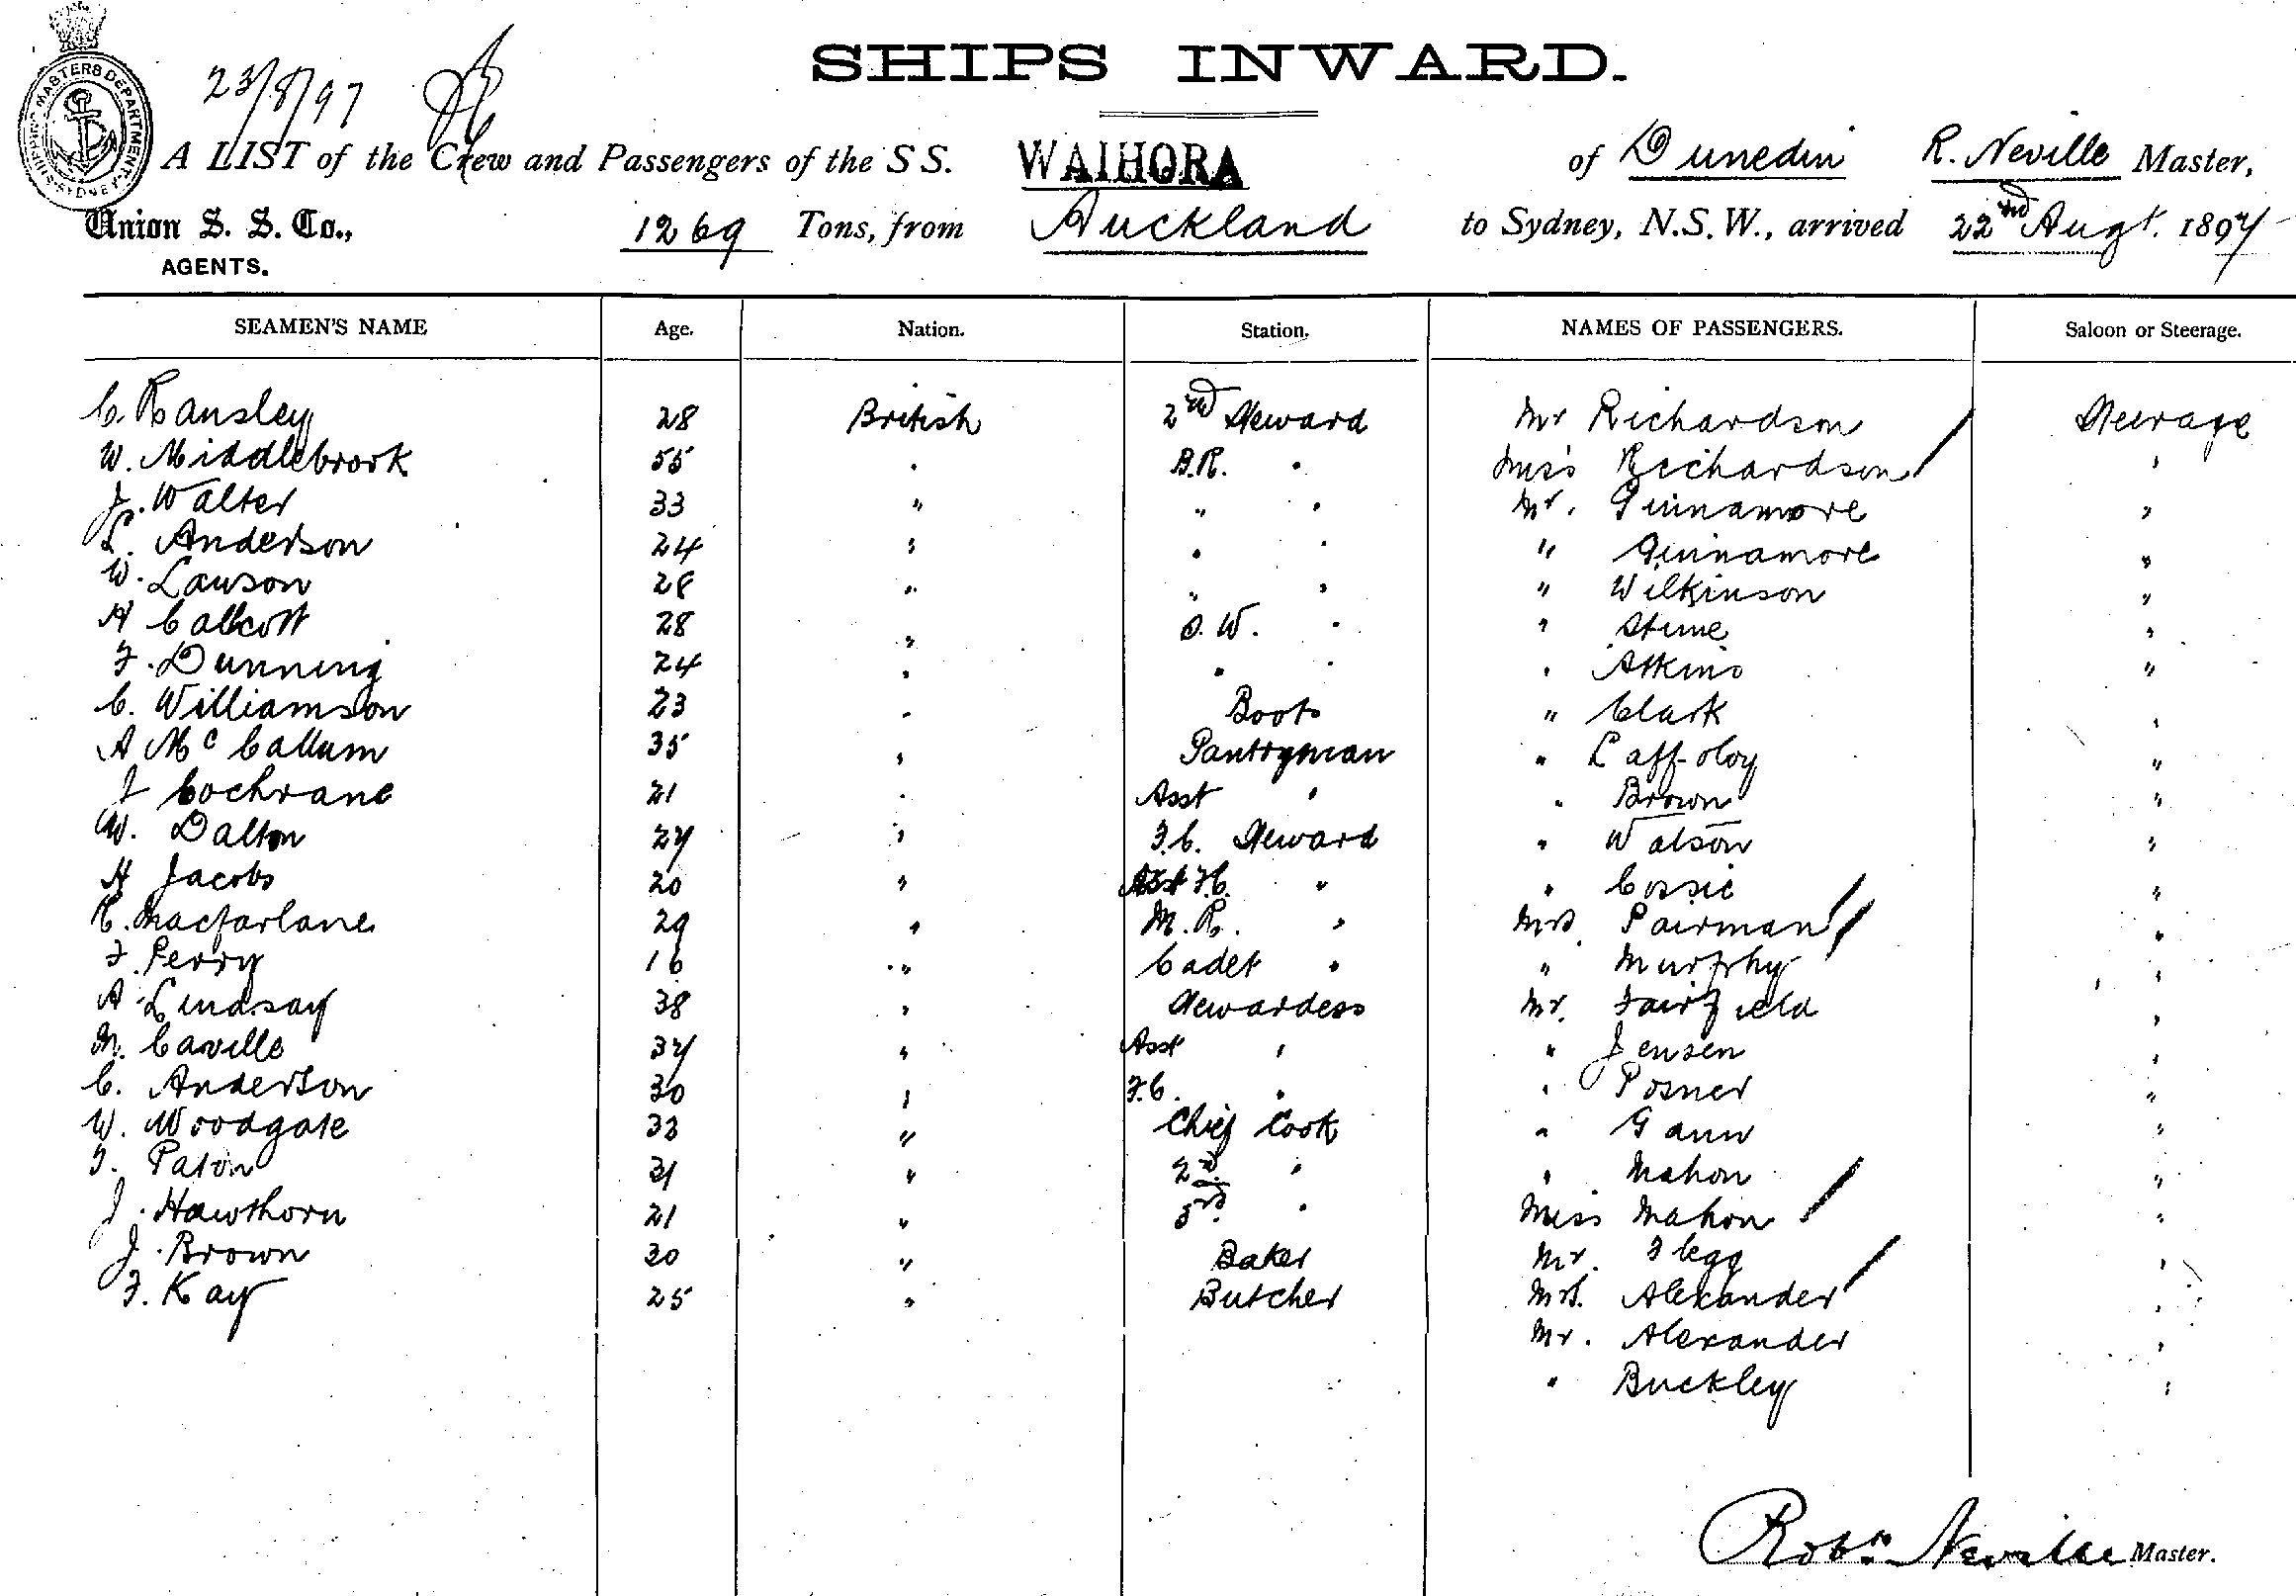 SHIPPING MASTERS DEPARTMENT. SYDNEY
23/8/97
SHIPS INWARD.
A LIST of the Crew and Passengers of the SS. WAIHORA of Dunedin R. Neville Master,
Union S. S. Co., 1269 Tons, from Auckland to Sydney, N.S.W., arrived 22nd Augt. 1897
AGENTS.
SEAMEN'S NAME Age. Nation. Station. NAMES OF PASSENGERS. Saloon or Steerage.
C. Ransley 28 British 2nd Steward Mr Richardson Steerage
W. Middlebrook 55 " B.R. " Miss Richardson "
J. Walter 33 " " " Mr. Guinnamore "
L. Anderson 24 " " " " Guinnamore "
W. Lawson 28 " " " " Wilkinson "
H Callcott 28 " S.W. " " "
F. Dunning 24 " " " " Atkins "
C. Williamson 23 " Boots " Clark "
A McCallum 35 " Pantryman " "
J Cochrane 21 " Asst " " Brown "
W. Dalton 27 " F.C. Steward " Watson "
H Jacobs 20 " Asst F.C. " " Cossie "
R. Macfarlane 29 " M.R. " Mrs. Pairman "
F. Perry 16 " Cadet " " Murphy "
A Lindsay 38 " Stewardess Mr. Fairfield "
M. Caville 37 " Asst " " Jensen "
C. Anderson 30 " F.C. " " Posner "
W. Woodgate 33 " Chief Cook " Gann "
T. Paton 31 " 2nd " " Mahon "
J. Hawthorn 21 " 3rd " Miss Mahon "
J. Brown 30 " Baker Mr. Flegg "
F. Kay 25 " Butcher Mrs. Alexander "
Mr. Alexander "
" Buckley "
Robt. Neville Master.